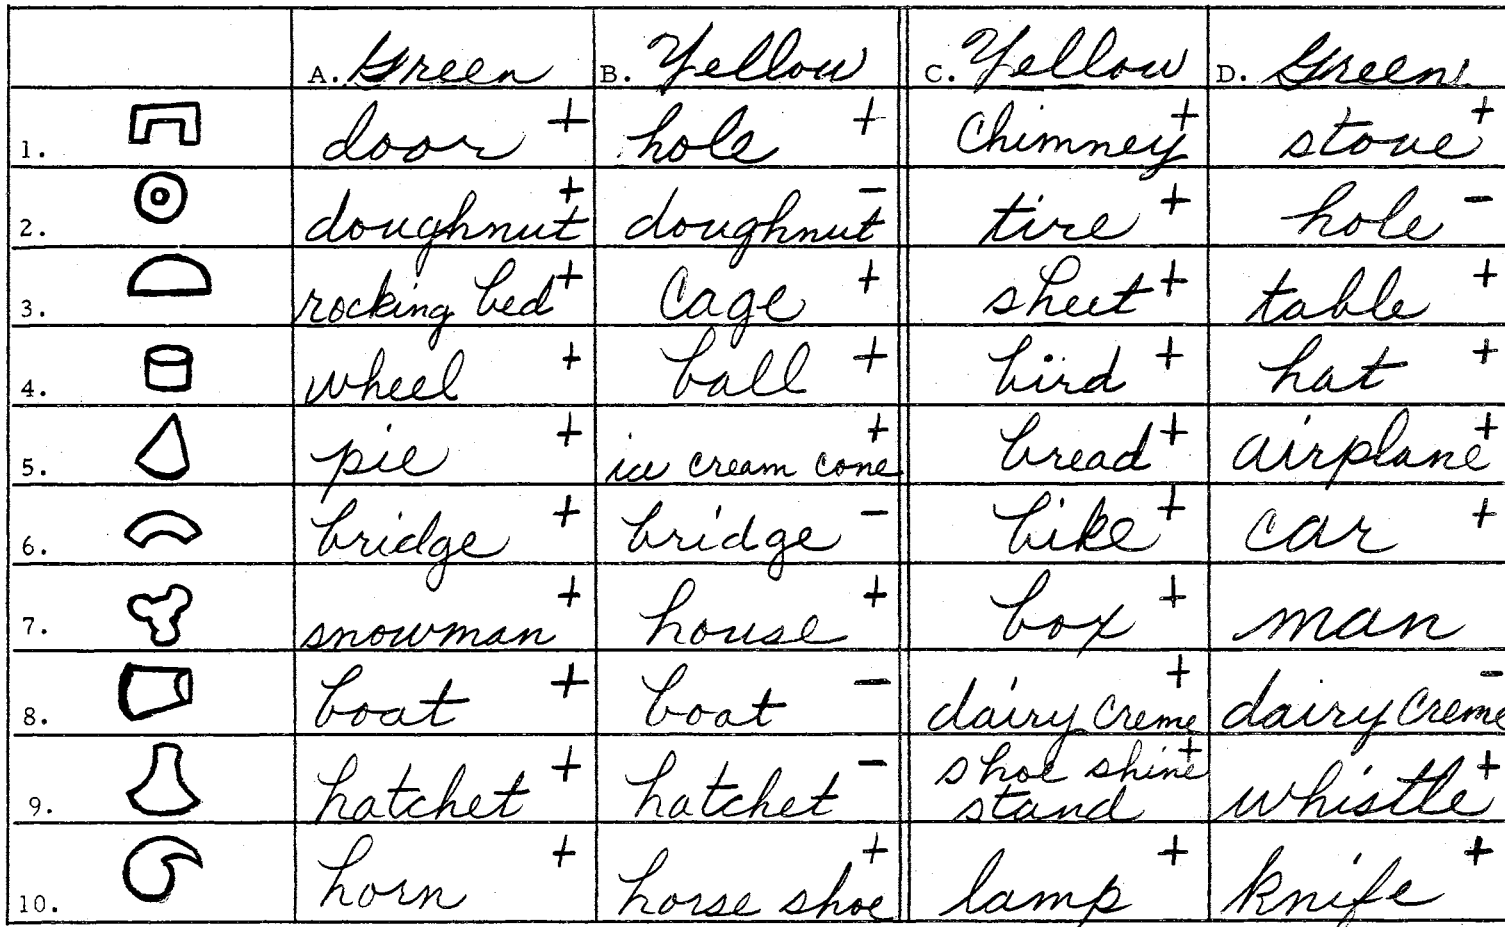 A. Green B. Yellow C. Yellow D. Green
1. door + hole + chimney + stove +
2. doughnut + doughnut - tire + hole -
3. rocking bed + cage + sheet + table +
4. wheel + ball + bird + hat +
5. pie + ice cream cone + bread + airplane +
6. bridge + bridge - bike + car +
7. snowman + house + box + man
8. boat + boat - dairy creme + dairy creme -
9. hatchet + hatchet - shoe shine stand + whistle +
10. horn + horse shoe + lamp + knife +